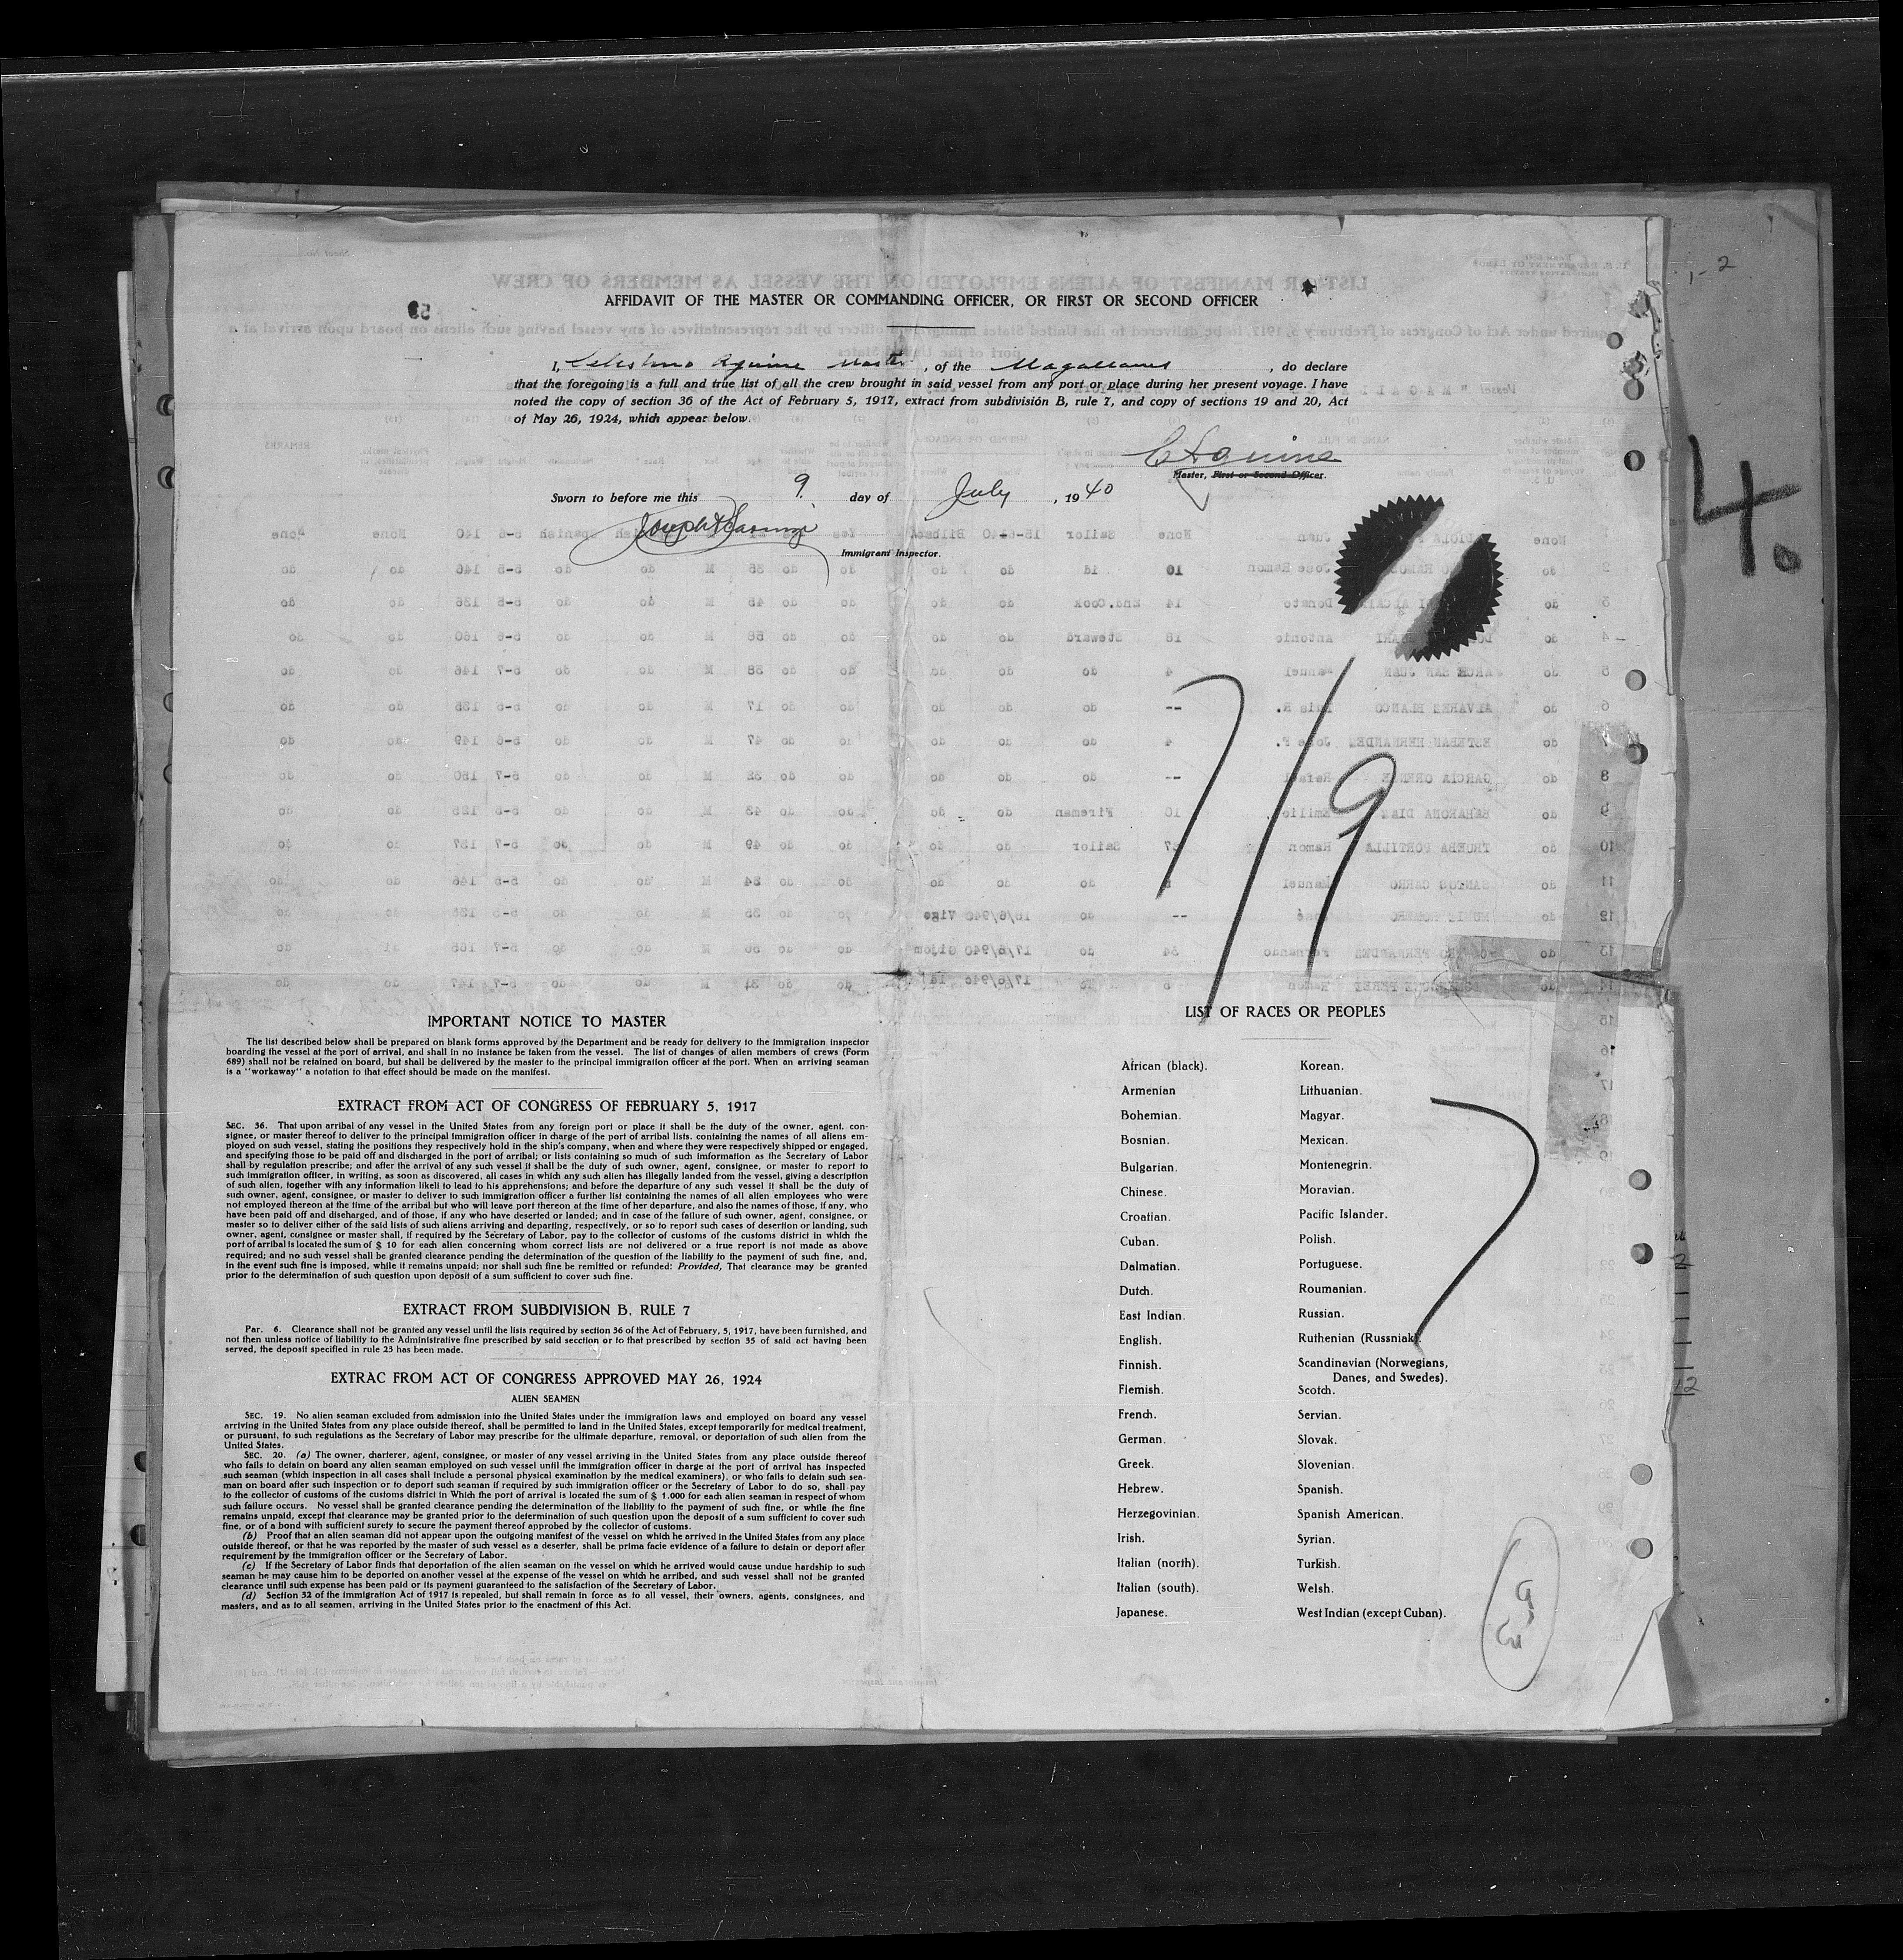 AFFIDAVIT OF THE MASTER OR COMMANDING OFFICER, OR FIRST OR SECOND OFFICER
I, Celestino Aguirre Master, of the Magallanes, do declare
that the foregoing is a full and true list of all the crew brought in said vessel from any port or place during her present voyage. I have
noted the copy of section 36 of the Act of February 5, 1917, extract from subdivisión B, rule 7, and copy of sections 19 and 20, Act
of May 26, 1924, which appear below.
Master, First or Second Officer.
Sworn to before me this 9 day of July, 1940
Immigrant Inspector.
7/9
4.
IMPORTANT NOTICE TO MASTER
The list described below shall be prepared on blank forms approved by the Department and be ready for delivery to the immigration inspector
boarding the vessel at the port of arrival, and shall in no instance be taken from the vessel. The list of changes of alien members of crews (Form
689) shall not be retained on board, but shall be delivered by the master to the principal immigration officer at the port. When an arriving seaman
is a "workaway" a notation to that effect should be made on the manifest.
EXTRACT FROM ACT OF CONGRESS OF FEBRUARY 5, 1917
SEC. 36. That upon arribal of any vessel in the United States from any foreign port or place it shall be the duty of the owner, agent, con-
signee, or master thereof to deliver to the principal immigration officer in charge of the port of arribal lists, containing the names of all aliens em-
ployed on such vessel, stating the positions they respectively hold in the ship's company, when and where they were respectively shipped or engaged,
and specifying those to be paid off and discharged in the port of arribal; or lists containing so much of such imformation as the Secretary of Labor
shall by regulation prescribe; and after the arrival of any such vessel it shall be the duty of such owner, agent, consignee, or master to report to
such immigration officer, in writing, as soon as discovered, all cases in which any such alien has illegally landed from the vessel, giving a description
of such alien, together with any information likeli to lead to his apprehensions; and before the departure of any such vessel it shall be the duty of
such owner, agent, consignee, or master to deliver to such immigration officer a further list containing the names of all alien employees who were
not employed thereon at the time of the arribal but who will leave port thereon at the time of her departure, and also the names of those, if any, who
have been paid off and diseharged, and of those, if any who have deserted or landed; and in case of the failure of such owner, agent, consignee, or
master so to deliver either of the said lists of such aliens arriving and departing, respectively, or so to report such cases of desertion or landing, such
owner, agent, consignee or master shall, if required by the Secretary of Labor, pay to the collector of customs of the customs district in which the
port of arribal is located the sum of $ 10 for each alien concerning whom correct lists are not delivered or a true report is not made as above
required; and no such vessel shall be granted clearance pending the determination of the question of the liability to the payment of such fine, and,
in the event such fine is imposed, while it remains unpaid; nor shall such fine be remitted or refunded: Provided, That clearance may be granted
prior to the determination of such question upon deposit of a sum sufficient to cover such fine.
EXTRACT FROM SUBDIVISION B, RULE 7
Par. 6. Clearance shall not be granted any vessel until the lists required by section 36 of the Act of February, 5, 1917, have been furnished, and
not then unless notice of liability to the Administrative fine prescribed by said secction or to that prescribed by section 35 of said act having been
served, the deposit specified in rule 23 has been made.
EXTRAC FROM ACT OF CONGRESS APPROVED MAY 26, 1924
ALIEN SEAMEN
SEC. 19. No alien seaman excluded from admission into the United States under the immigration laws and employed on board any vessel
arriving in the United States from any place outside thereof, shall be permitted to land in the United States, except temporarily for medical treatment,
or pursuant, to such regulations as the Secretary of Labor may prescribe for the ultimate departure, removal, or deportation of such alien from the
United States.
SEC. 20. (a) The owner, charterer, agent, consignee, or master of any vessel arriving in the United States from any place outside thereof
who fails to detain on board any alien seaman employed on such vessel until the immigration officer in charge at the port of arrival has inspected
such seaman (which inspection in all cases shall include a personal physical examination by the medical examiners), or who fails to detain such sea-
man on board after such inspection or to deport such seaman if required by such immigration officer or the Secretary of Labor to do so, shall pay
to the collector of customs of the customs district in Which the port of arrival is located the sum of $ 1.000 for each alien seaman in respect of whom
such failure occurs. No vessel shall be granted clearance pending the determination of the liability to the payment of such fine, or while the fine
remains unpaid, except that clearance may be granted prior to the determination of such question upon the deposit of a sum sufficient to cover such
fine, or of a bond with sufficient surety to secure the payment thereof approved by the collector of customs.
(b) Proof that an alien seaman did not appear upon the outgoing manifest of the vessel on which he arrived in the United States from any place
outside thereof, or that he was reported by the master of such vessel as a deserter, shall be prima facie evidence of a failure to detain or deport after
requirement by the immigration officer or the Secretary of Labor.
(c) If the Secretary of Labor finds that deportation of the alien seaman on the vessel on which he arrived would cause undue hardship to such
seaman he may cause him to be deported on another vessel at the expense of the vessel on which he arribed, and such vessel shall not be granted
clearance until such expense has been paid or its payment guaranteed to the satisfaction of the Secretary of Labor.
(d) Section 32 of the immigration Act of 1917 is repealed, but shall remain in force as to all vessel, their owners, agents, consignees, and
masters, and as to all seamen, arriving in the United States prior to the enactment of this Act.
LIST OF RACES OR PEOPLES
African (black). Korean.
Armenian Lithuanian.
Bohemian. Magyar.
Bosnian. Mexican.
Bulgarian. Montenegrin.
Chinese. Moravian.
Croatian. Pacific Islander.
Cuban. Polish.
Dalmatian. Portuguese.
Dutch. Roumanian.
East Indian. Russian.
English. Ruthenian (Russniak).
Finnish. Scandinavian (Norwegians,
Danes, and Swedes).
Flemish. Scotch.
French. Servian.
German. Slovak.
Greek. Slovenian.
Hebrew. Spanish.
Herzegovinian. Spanish American.
Irish. Syrian.
Italian (north). Turkish.
Italian (south). Welsh.
Japanese. West Indian (except Cuban).